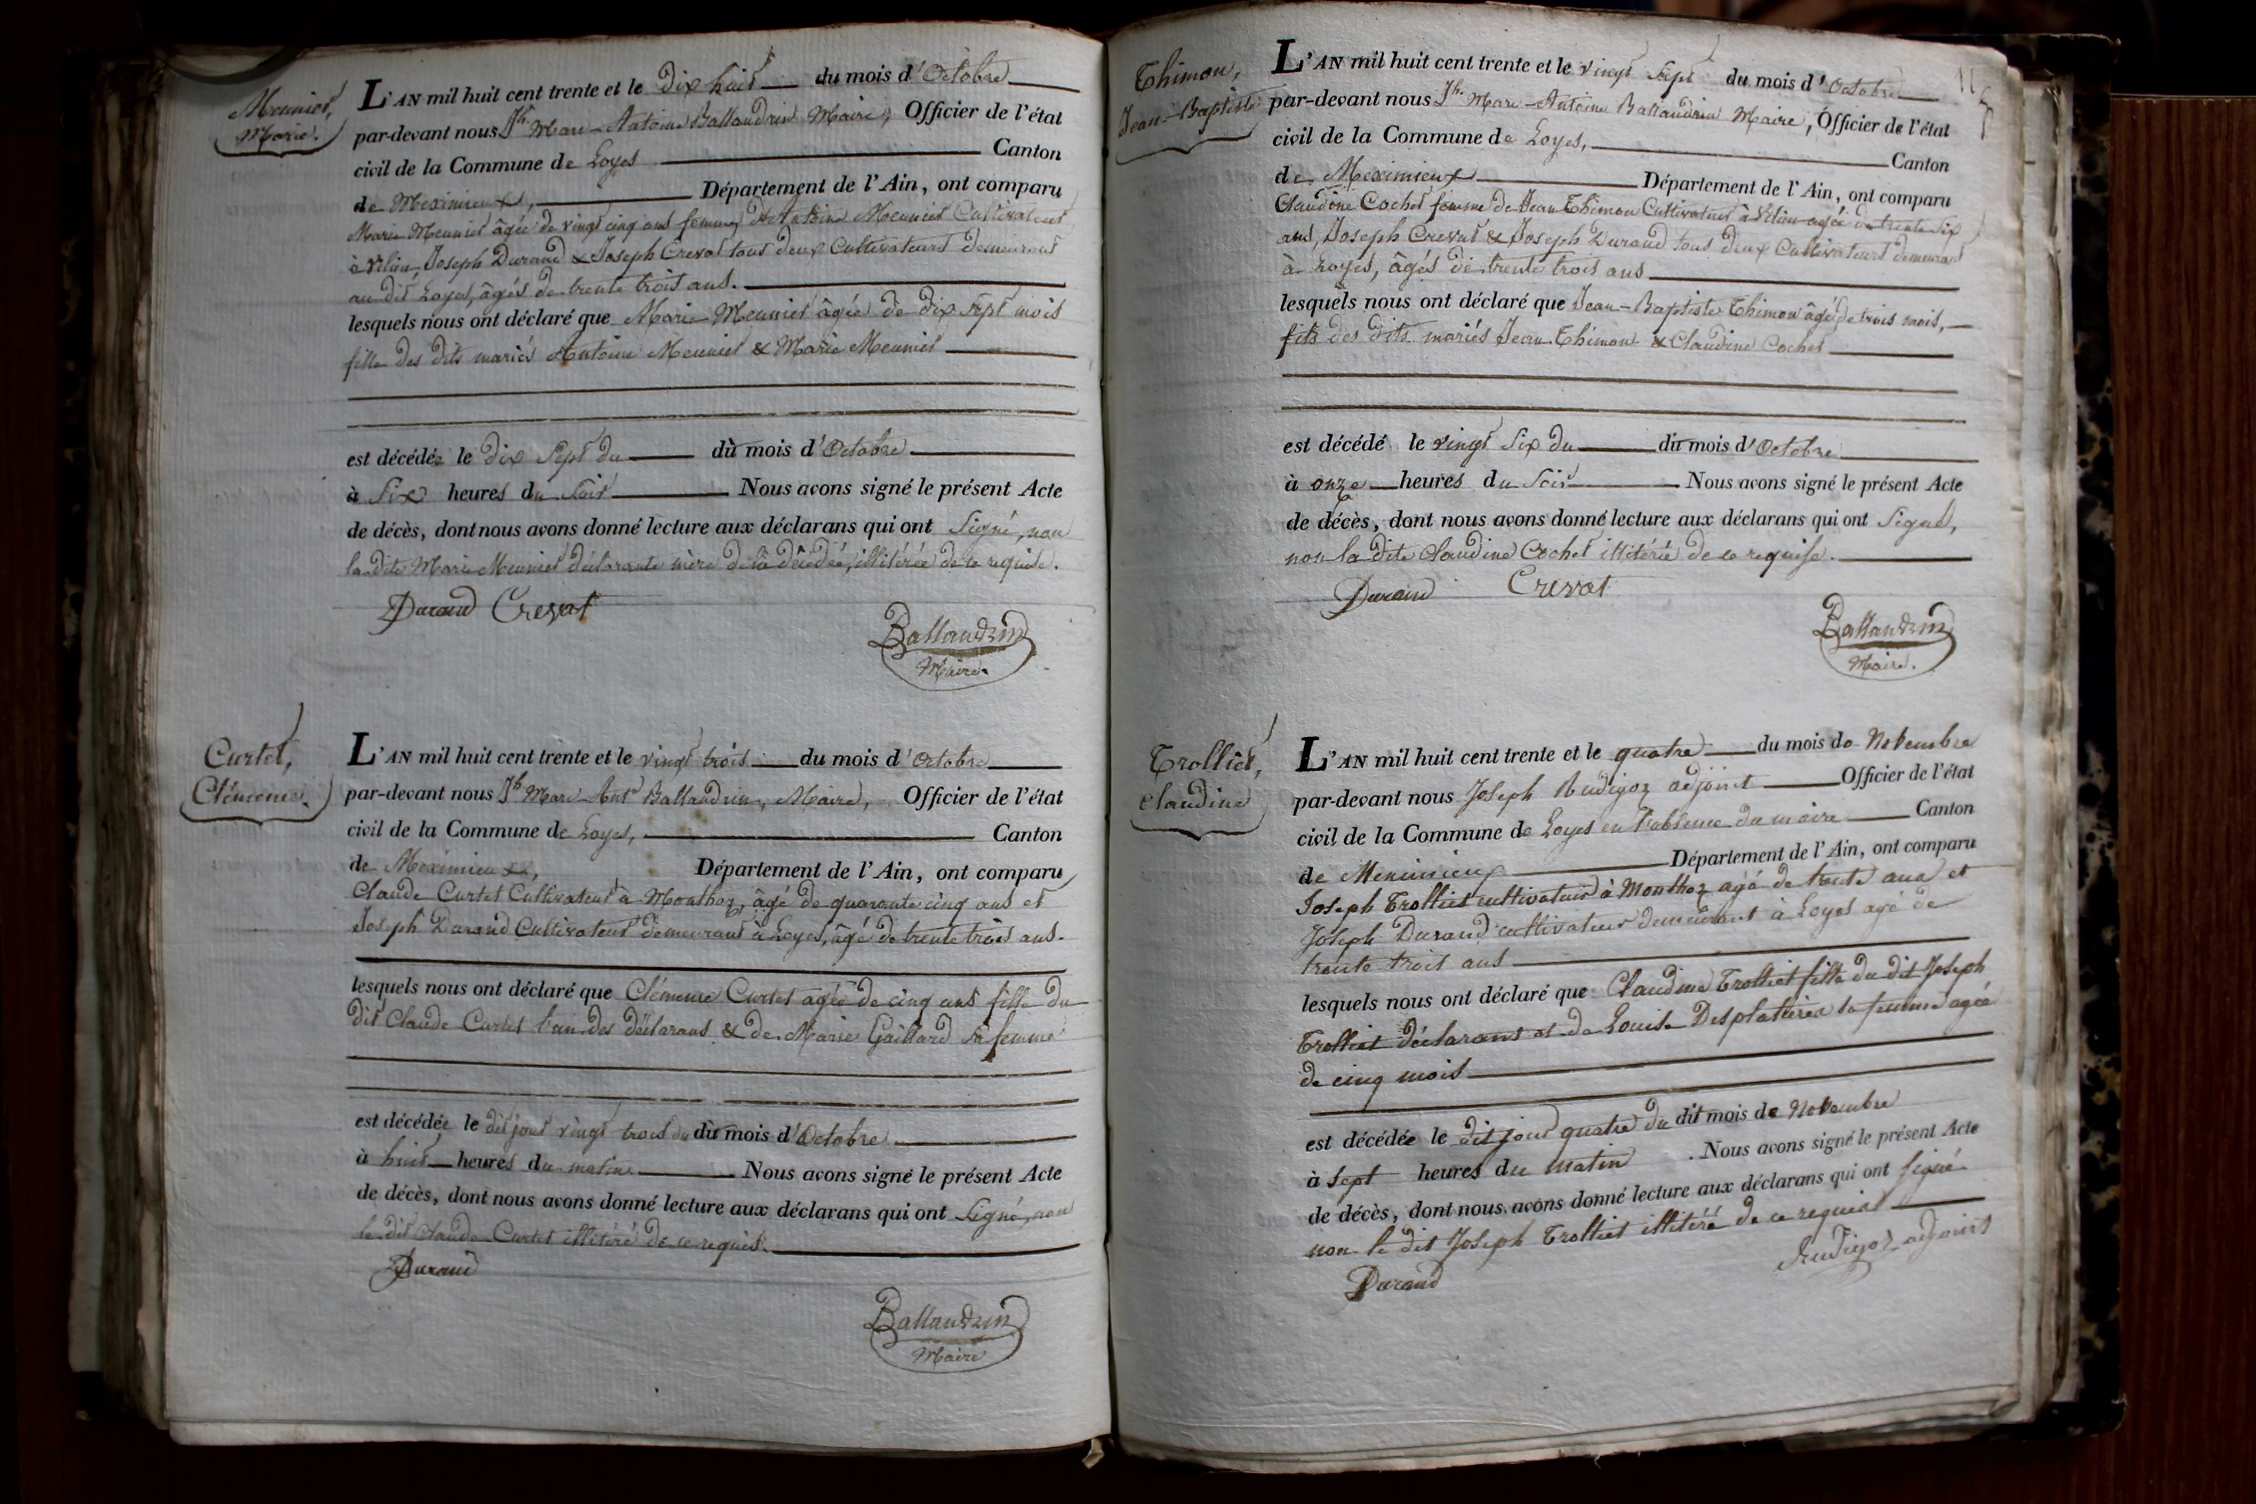 Meunier,
Marie.
L'AN mil huit cent trente et le dix huit du mois d'Octobre
par-devant nous Jh. Marc-Antoine Ballandrin Maire, Officier de l'état
civil de la Commune de Loyes Canton
de Meximieux, Département de l'Ain, ont comparu
Marie Meunier âgée de vingt cinq ans femme d'Antoine Meunier Cultivateur
à Vilieu Joseph Durand & Joseph Crevat tous deux Cultivateurs demeurant
au dit Loyes, âgés de trente trois ans.
lesquels nous ont déclaré que Marie Meunier âgée de dix sept mois
fille des dits mariés Antoine Meunier & Marie Meunier
est décédée le dix sept du dit mois d'Octobre
à six heures du soir Nous avons signé le présent Acte
de décès, dont nous avons donné lecture aux déclarans qui ont signé, non
la dite Marie Meunier déclarante mère de la décédée, illitérée de ce requise.
Durand Crevat
Ballandrin
Maire.
Curtet,
Clémence.
L'AN mil huit cent trente et le vingt trois du mois d'Octobre
par-devant nous Jh Marc Ant. Ballandrin, Maire, Officier de l'état
civil de la Commune de Loyes, Canton
de Meximieux, Département de l'Ain, ont comparu
Claude Curtet Cultivateur à Monthoz, âgé de quarante cinq ans et
Joseph Durand Cultivateur demeurant à Loyes, âgé de trente trois ans.
lesquels nous ont déclaré que Clémence Curtet agée de cinq ans fille du
dit Claude Curtet l'un des déclarans & de Marie Gaillard sa femme
est décédée le dit jour vingt trois du dit mois d'Octobre
à huit heures du matin Nous avons signé le présent Acte
de décès, dont nous avons donné lecture aux déclarans qui ont signé, non
le dit Claude Curtet illitéré de ce requis.
Durand
Ballandrin
Maire
Thimon,
Jean-Baptiste
L'AN mil huit cent trente et le vingt sept du mois d'Octobre
par-devant nous Jh. Marc-Antoine Ballandrin Maire, Officier de l'état
civil de la Commune de Loyes, Canton
de Meximieux Département de l'Ain, ont comparu
Claudine Cochet femme de Jean Thimon Cultivateur à Vilieu agée de trente six
ans, Joseph Crevat & Joseph Durand tous deux Cultivateurs demeurant
à Loyes, âgés de trente trois ans
lesquels nous ont déclaré que Jean-Baptiste Thimon âgé de trois mois,
fils des dits mariés Jean Thimon & Claudine Cochet
est décédé le vingt six du dit mois d'Octobre
à onze heures du soir Nous avons signé le présent Acte
de décès, dont nous avons donné lecture aux déclarans qui ont signé,
non la dite Claudine Cochet illitérée de ce requise.
Durand Crevat
Ballandrin
Maire.
Trolliet,
Claudine
L'AN mil huit cent trente et le quatre du mois de Novembre
par-devant nous Joseph Rudigoz adjoint Officier de l'état
civil de la Commune de Loyes en l'absence du maire Canton
de Meximieux Département de l'Ain, ont comparu
Joseph Trolliet cultivateur à Monthoz agé de trente ans et
Joseph Durand cultivateur demeurant à Loyes agé de
trente trois ans
lesquels nous ont déclaré que Claudine Trolliet fille du dit Joseph
Trolliet déclarans et de Louise Desplatières sa femme agée
de cinq mois
est décédée le dit jour quatre du dit mois de Novembre
à sept heures du matin. Nous avons signé le présent Acte
de décès, dont nous avons donné lecture aux déclarans qui ont signé
non le dit Joseph Trolliet illitéré de ce requis
Rudigoz adjoint
Durand